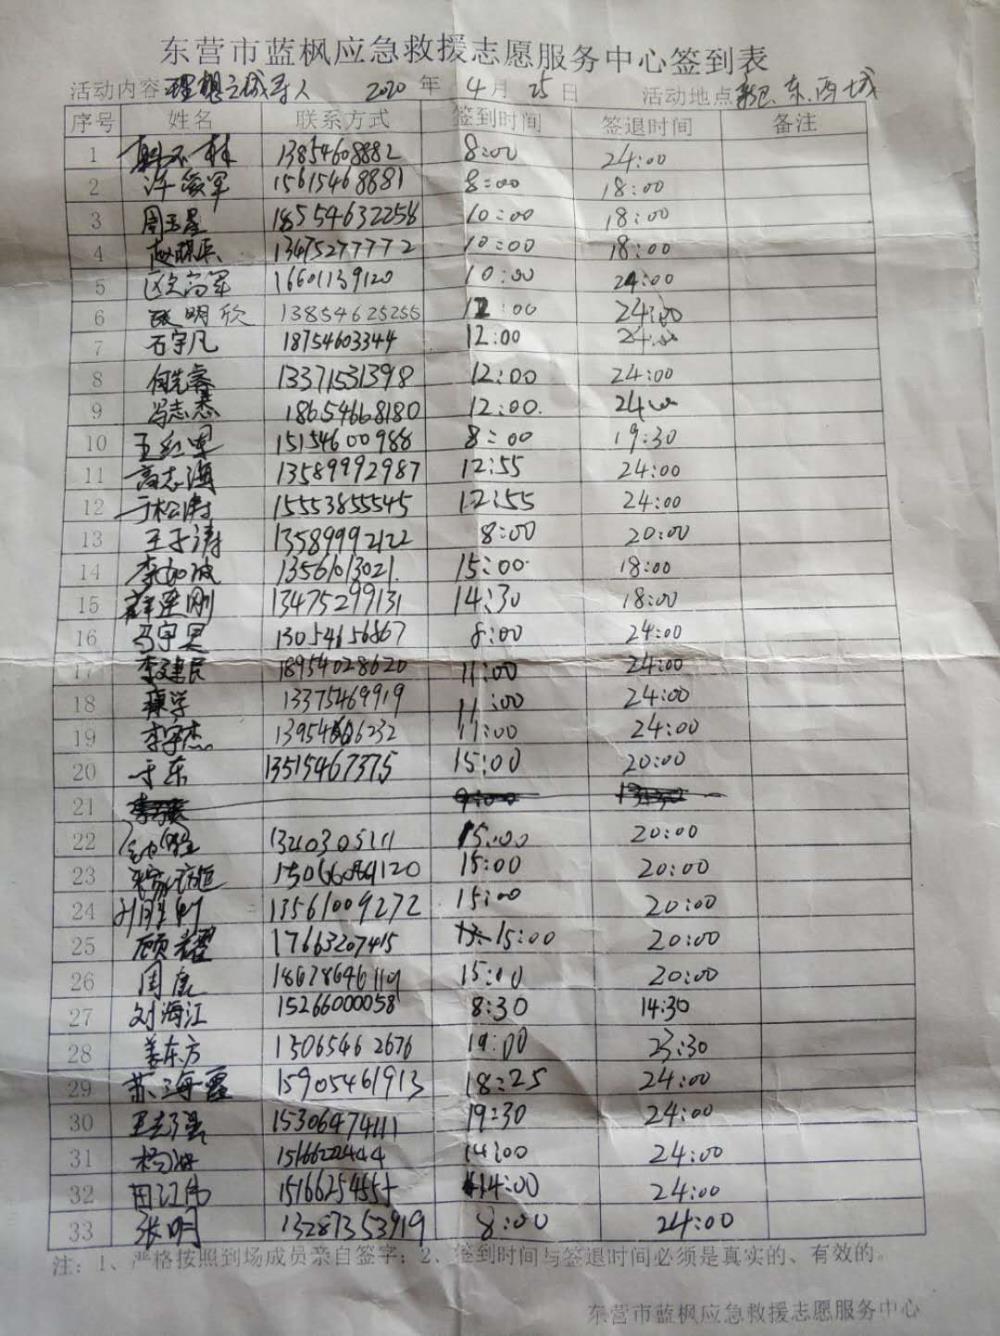 东营市蓝枫应急救援志愿服务中心签到表
活动内容 理想之城寻人 2020 年 4 月 25 日 活动地点 东、西城
序号 姓名 联系方式 签到时间 签退时间 备注
1 13854608882 8:00 24:00
2 许俊军 15615468881 8:00 18:00
3 周玉星 18554632256 10:00 18:00
4 13475277772 10:00 18:00
5 16601139120 10:00 24:00
6 张明欣 13854625255 12:00 24:00
7 石宇凡 18754603344 12:00 24:00
8 何先睿 13371531398 12:00 24:00
9 冯志杰 18654668180 12:00 24:00
10 王红军 15154600988 8:00 19:30
11 高志海 13589992987 12:55 24:00
12 于松涛 15553855545 12:55 24:00
13 王子涛 13589992122 8:00 20:00
14 李如波 13561013021 15:00 18:00
15 薛军刚 13475299131 14:30 18:00
16 马宇昊 13054656867 8:00 24:00
17 李建民 18954028620 11:00 24:00
18 13375469919 11:00 24:00
19 李宇杰 13954666232 11:00 24:00
20 于东 13515467375 15:00 20:00
21
22 1340305111 15:00 20:00
23 15:00 20:00
24 刘胜利 13561009272 15:00 20:00
25 顾耀 17663207415 15:00 20:00
26 周康 15:00 20:00
27 刘海江 15266000058 8:30 14:30
28 姜东方 13065462676 19:00 23:30
29 苏海霞 15905461913 18:25 24:00
30 15306474111 19:30 24:00
31 14:00 24:00
32 田江伟 14:00 24:00
33 张明 13287353919 8:00 24:00
注：1、严格按照到场成员亲自签字；2、签到时间与签退时间必须是真实的、有效的。
东营市蓝枫应急救援志愿服务中心